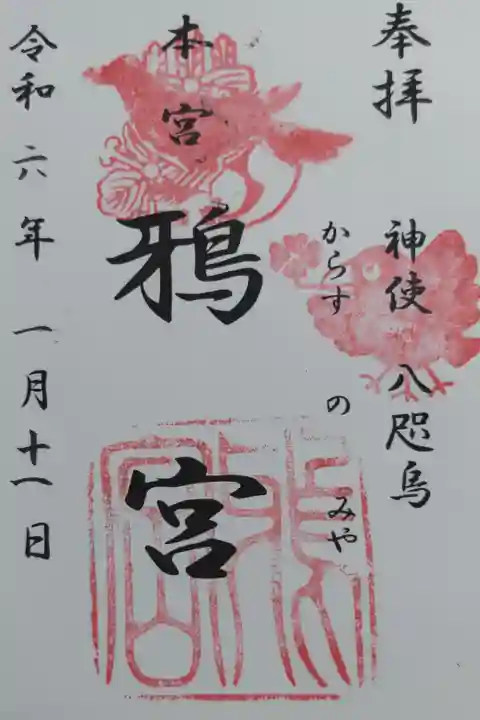 奉拝
神使 八咫烏
からすのみや
本宮
鴉宮
令和六年一月十一日